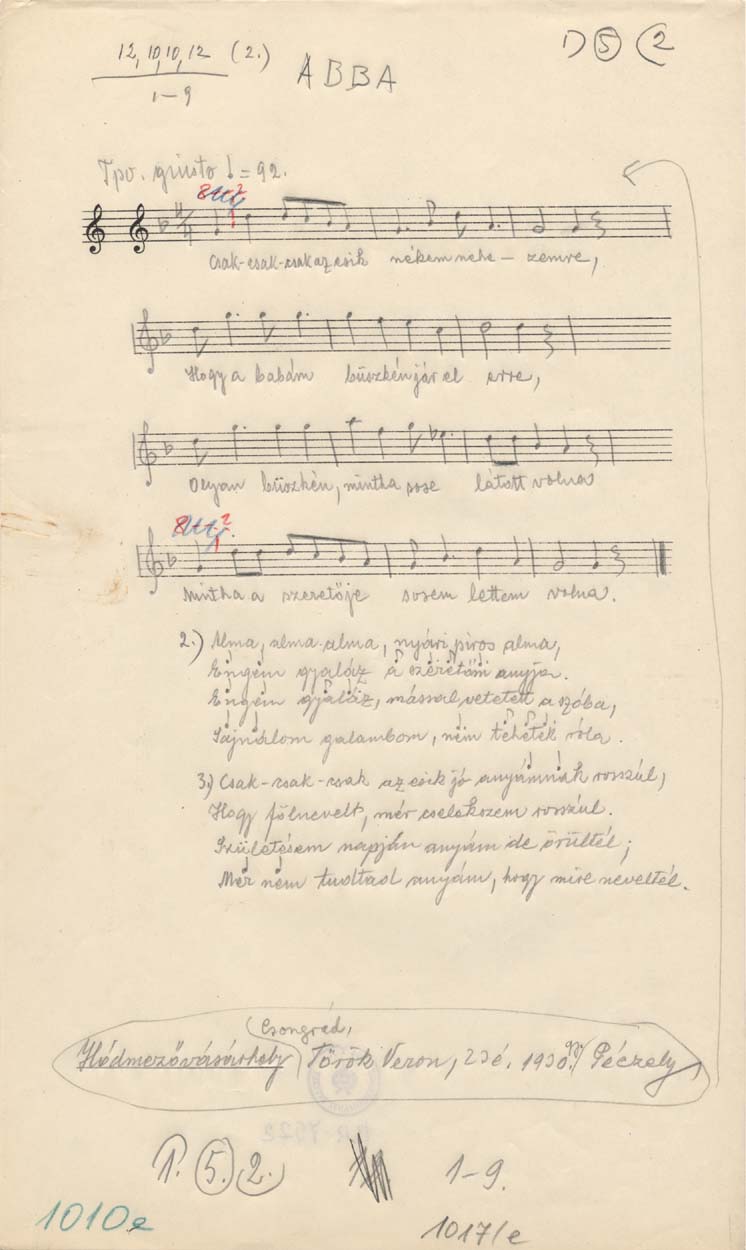 12, 10, 10, 12 (2.)
1–9
ABBA
1) 5 (2
Tpo. giusto ♩ = 92.
Csak-csak-csak az esik nékem nehe – zemre,
Hogy a babám büszkén jár el erre,
Olyan büszkén, mintha sose látott volna
Mintha a szeretője sosem lettem volna.
2.) Alma, alma-alma, nyári piros alma,
Engem gyaláz a szeretőm anyja.
Engem gyaláz, mással vetetett a szóba,
Sajnálom galambom, nem tehetek róla.
3.) Csak-csak-csak az esik jó anyámnak rosszúl,
Hogy fölnevelt, mér cselekszem rosszúl.
Születésem napján anyám de örültél;
Mér nem tudtad anyám, hogy mire neveltél.
(Csongrád,
Hódmezővásárhely) Török Veron, 23 é. 1930. Péczely
1. 5. 2. 1–9.
1010e
1017/e